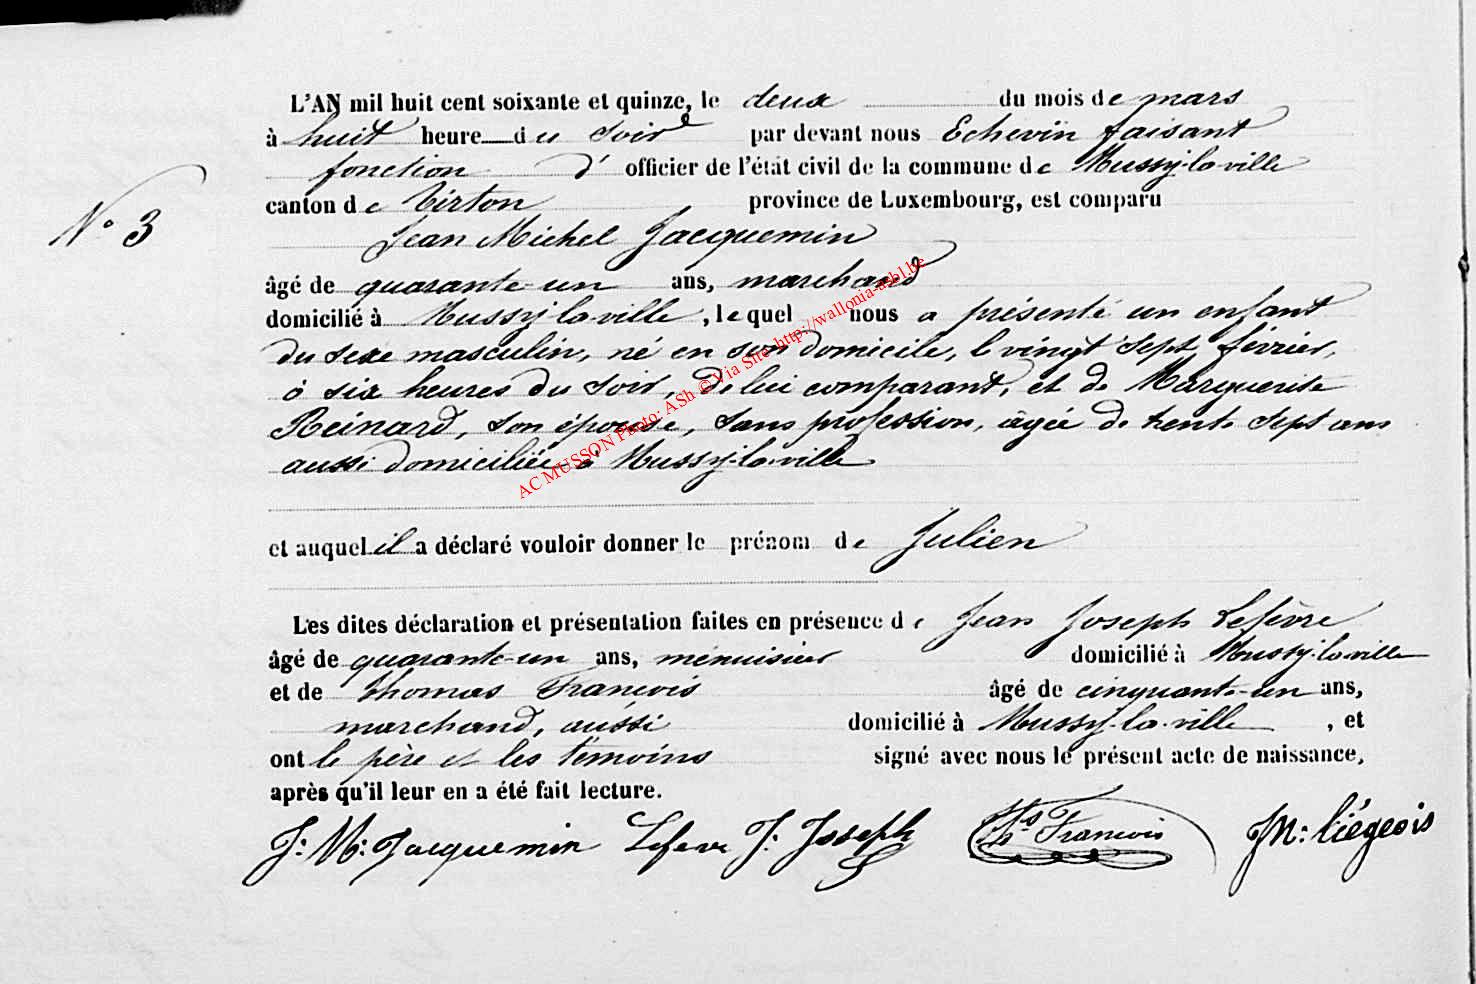 L'AN mil huit cent soixante et quinze, le deux du mois de mars
à huit heure du soir par devant nous Echevin faisant
fonction d' officier de l'état civil de la commune de Mussy-la-ville
canton de Virton province de Luxembourg, est comparu
N° 3
Jean Michel Jacquemin
âgé de quarante-un ans, marchand
domicilié à Mussy-la-ville, lequel nous a présenté un enfant
du sexe masculin, né en son domicile, le vingt sept février,
à six heures du soir, de lui comparant, et de Marguerite
Reinard, son épouse, sans profession, agée de trente sept ans
aussi domiciliée à Mussy-la-ville
AC MUSSON Photo: ASh © Via Site http://wallonia-asbl.be
et auquel il a déclaré vouloir donner le prénom de Julien
Les dites déclaration et présentation faites en présence de Jean Joseph Lefèvre
âgé de quarante-un ans, menuisier domicilié à Mussy-la-ville
et de Thomas François âgé de cinquante-un ans,
marchand, aussi domicilié à Mussy-la-ville, et
ont le père et les témoins signé avec nous le présent acte de naissance,
après qu'il leur en a été fait lecture.
J: M: Jacquemin Lefevre J: Joseph Ths François JM: liégeois